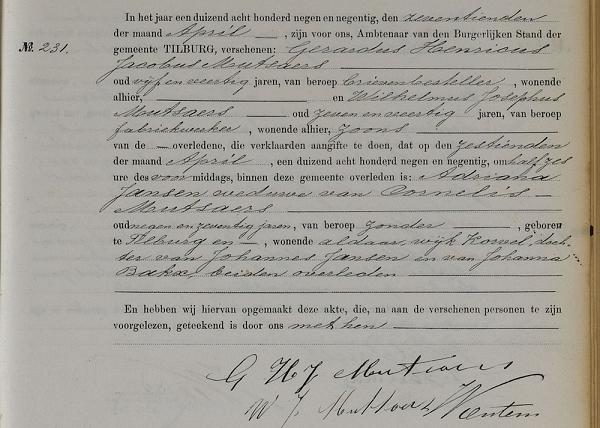 In het jaar een duizend acht honderd negen en negentig, den zeventienden
der maand April, zijn voor ons, Ambtenaar van den Burgerlijken Stand der
№. 231. gemeente TILBURG, verschenen: Gerardus Henricus
Jacobus Mutsaers
oud vijf en veertig jaren, van beroep brievenbesteller, wonende
alhier, en Wilhelmus Josephus
Mutsaers oud zeven en veertig jaren, van beroep
fabriekwerker, wonende alhier, zoons
van de overledene, die verklaarden aangifte te doen, dat op den zestienden
der maand April, een duizend acht honderd negen en negentig, om half zes
ure des voormiddags, binnen deze gemeente overleden is: Adriana
Jansen weduwe van Cornelis
Mutsaers
oud negen en zeventig jaren, van beroep zonder, geboren
te Tilburg en, wonende aldaar, wijk Korvel, doch-
ter van Johannes Jansen en van Johanna
Bakx, beiden overleden
En hebben wij hiervan opgemaakt deze akte, die, na aan de verschenen personen te zijn
voorgelezen, geteekend is door ons met hen
G H J Mutsaers
W J Mutsaers